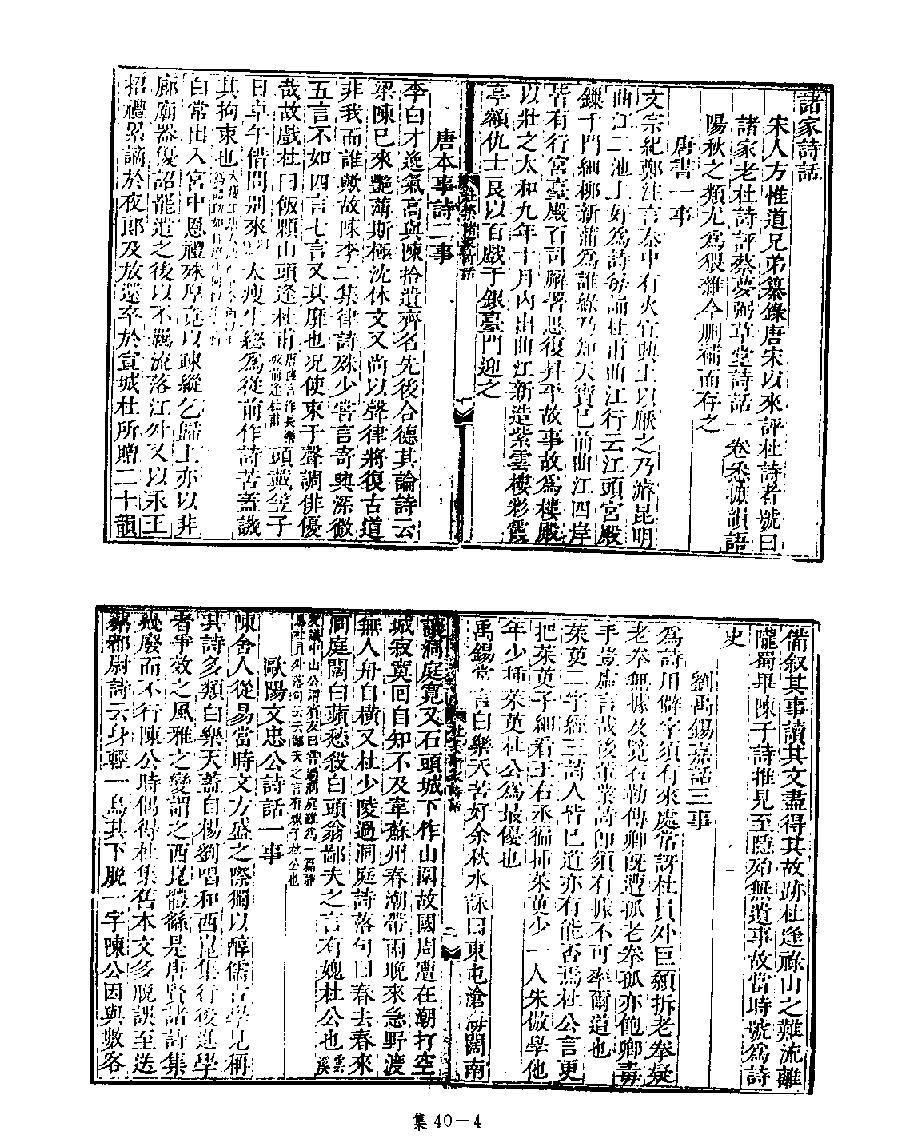 諸家詩話
宋人方惟道兄弟纂錄唐宋以來評杜詩者號曰
諸家老杜詩評蔡夢弼草堂詩話二卷悉摭韻語
陽秋之類尤為猥雜今刪補而存之
唐書一事
文宗紀鄭注言秦中有災宜興土以厭之乃濬昆明
曲江二池上好為詩每誦杜甫曲江行云江頭宮殿
鏁千門細柳新蒲為誰綠乃知天寶已前曲江四岸
皆有行宮臺殿百司廨署思復昇平故事故為樓殿
以壯之太和九年十月內出曲江新造紫雲樓彩霞
亭額仇士良以百戲于銀臺門迎之
唐本事詩二事
李白才逸氣高與陳拾遺齊名先後合德其論詩云
梁陳已來艷薄斯極沈休文又尚以聲律將復古道
非我而誰歟故陳李二集律詩殊少嘗言寄興深微
五言不如四言七言又其靡也況使束于聲調俳優
哉故戲杜曰飯顆山頭逢杜甫頭戴笠子
日卓午借問別來太瘦生總為從前作詩苦蓋譏
其拘束也
白常出入宮中恩禮殊厚竟以疎縱乞歸上亦以非
廊廟器優詔罷遣之後以不羈流落江外又以永王
招禮累謫於夜郎及放還卒於宣城杜所贈二十韻
備叙其事讀其文盡得其故跡杜逢祿山之難流離
隴蜀畢陳于詩推見至隱殆無遺事故當時號為詩
史
劉禹錫嘉話三事
為詩用僻字須有來處常評杜員外巨顙拆老拳疑
老拳無據及覽石勒傳卿既遭孤老拳孤亦飽卿毒
手豈虛言哉後輩業詩即須有據不可率爾道也
茱萸二字經三詩人皆已道亦有能否焉杜公言更
把茱萸子細看王右丞徧插茱萸少一人朱倣學他
年少插茱萸杜公為最優也
禹錫嘗言白樂天苦好余秋水詠曰東屯滄海闊南
讓洞庭寬又石頭城下作山圍故國周遭在潮打空
城寂寞回自知不及韋蘇州春潮帶雨晚來急野渡
無人舟自橫又杜少陵過洞庭詩落句曰春去春來
洞庭闊白蘋愁殺白頭翁鄙夫之言有媿杜公也
歐陽文忠公詩話一事
陳舍人從易當時文方盛之際獨以醇儒古學見稱
其詩多類白樂天蓋自楊劉唱和西崑集行後進學
者爭效之風雅之變謂之西崑體繇是唐賢諸詩集
幾廢而不行陳公時偶得杜集舊本文多脫誤至送
蔡都尉詩云身輕一鳥其下脫一字陳公因與數客
集 40－4